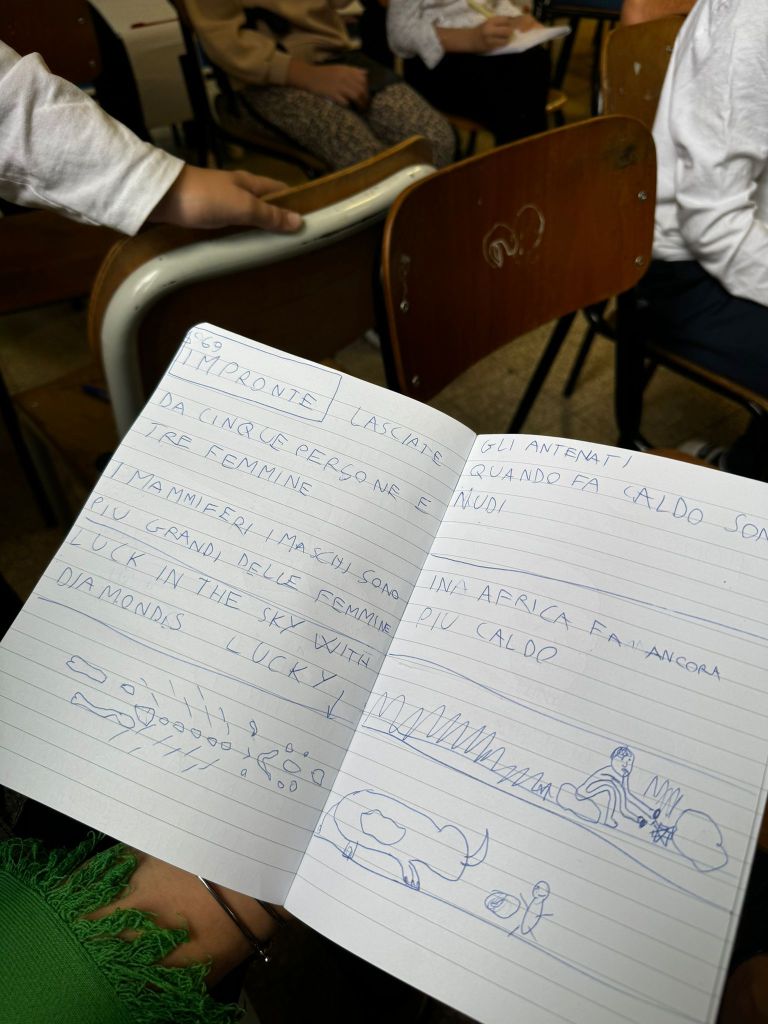 S69
IMPRONTE LASCIATE
DA CINQUE PERSONE E
TRE FEMMINE
I MAMMIFERI I MASCHI SONO
PIÙ GRANDI DELLE FEMMINE
LUCK IN THE SKY WITH
DIAMONDIS LUCKY
GLI ANTENATI
QUANDO FA CALDO SON
NUDI
INA AFRICA FA ANCORA
PIU CALDO